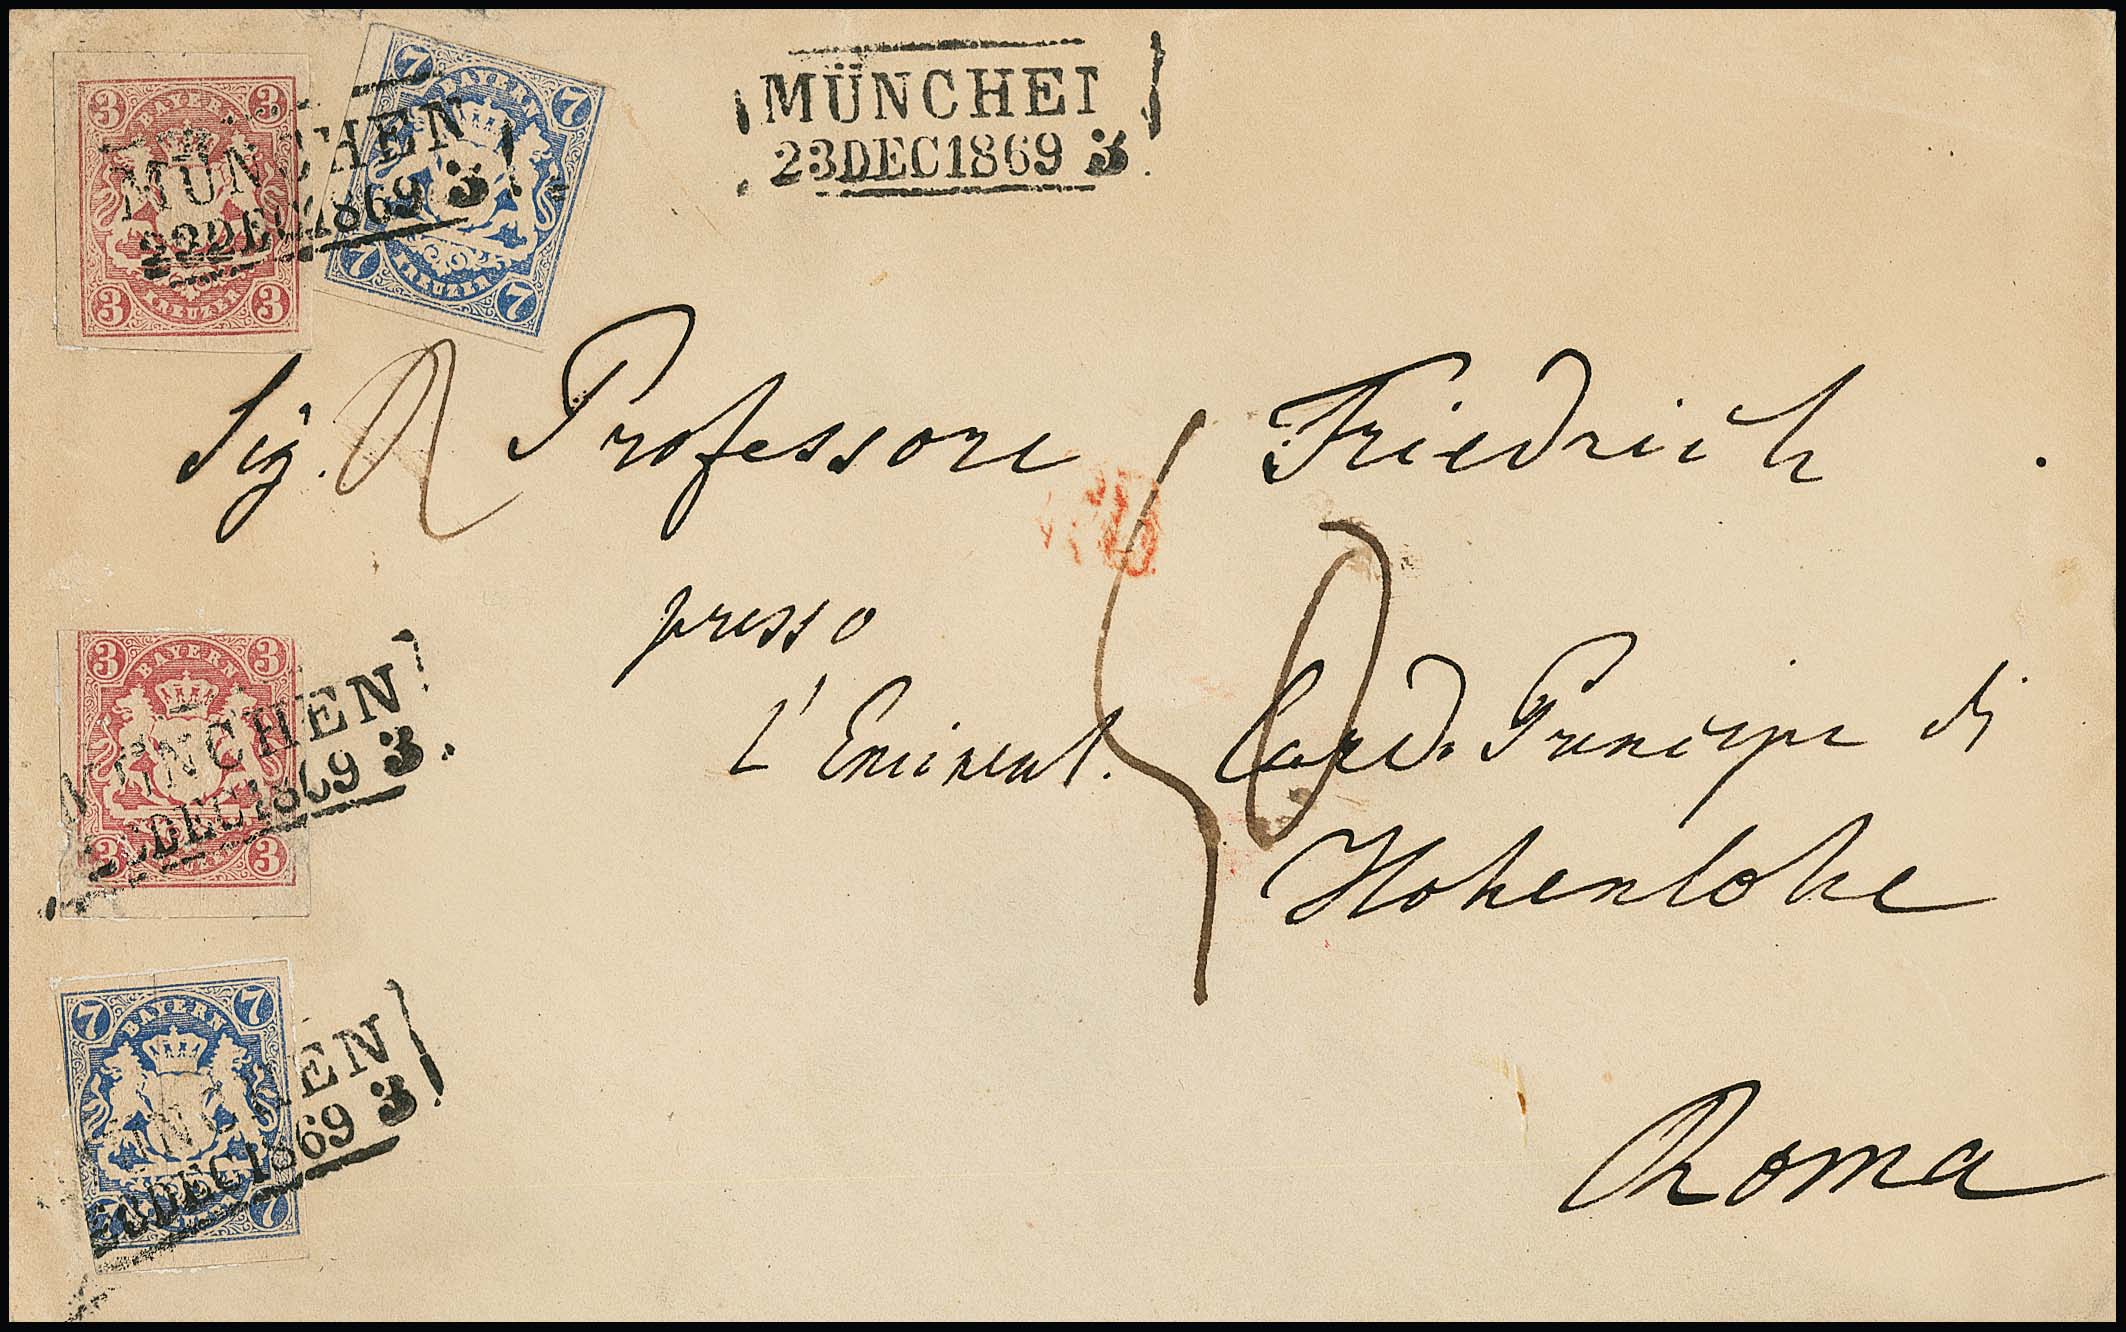 3 BAYERN 3
3 KREUZER 3
MÜNCHEN
1869 3
7 BAYERN 7
7 KREUZER 7
MÜNCHEN
23DEC1869 3
Sig. Professore Friedrich
presso
L'Eminent. Card. Principe di
Hohenlohe
Roma
3 BAYERN 3
3 3
MÜNCHEN
DEC1869 3
7 BAYERN 7
7 7
MÜNCHEN
DEC1869 3